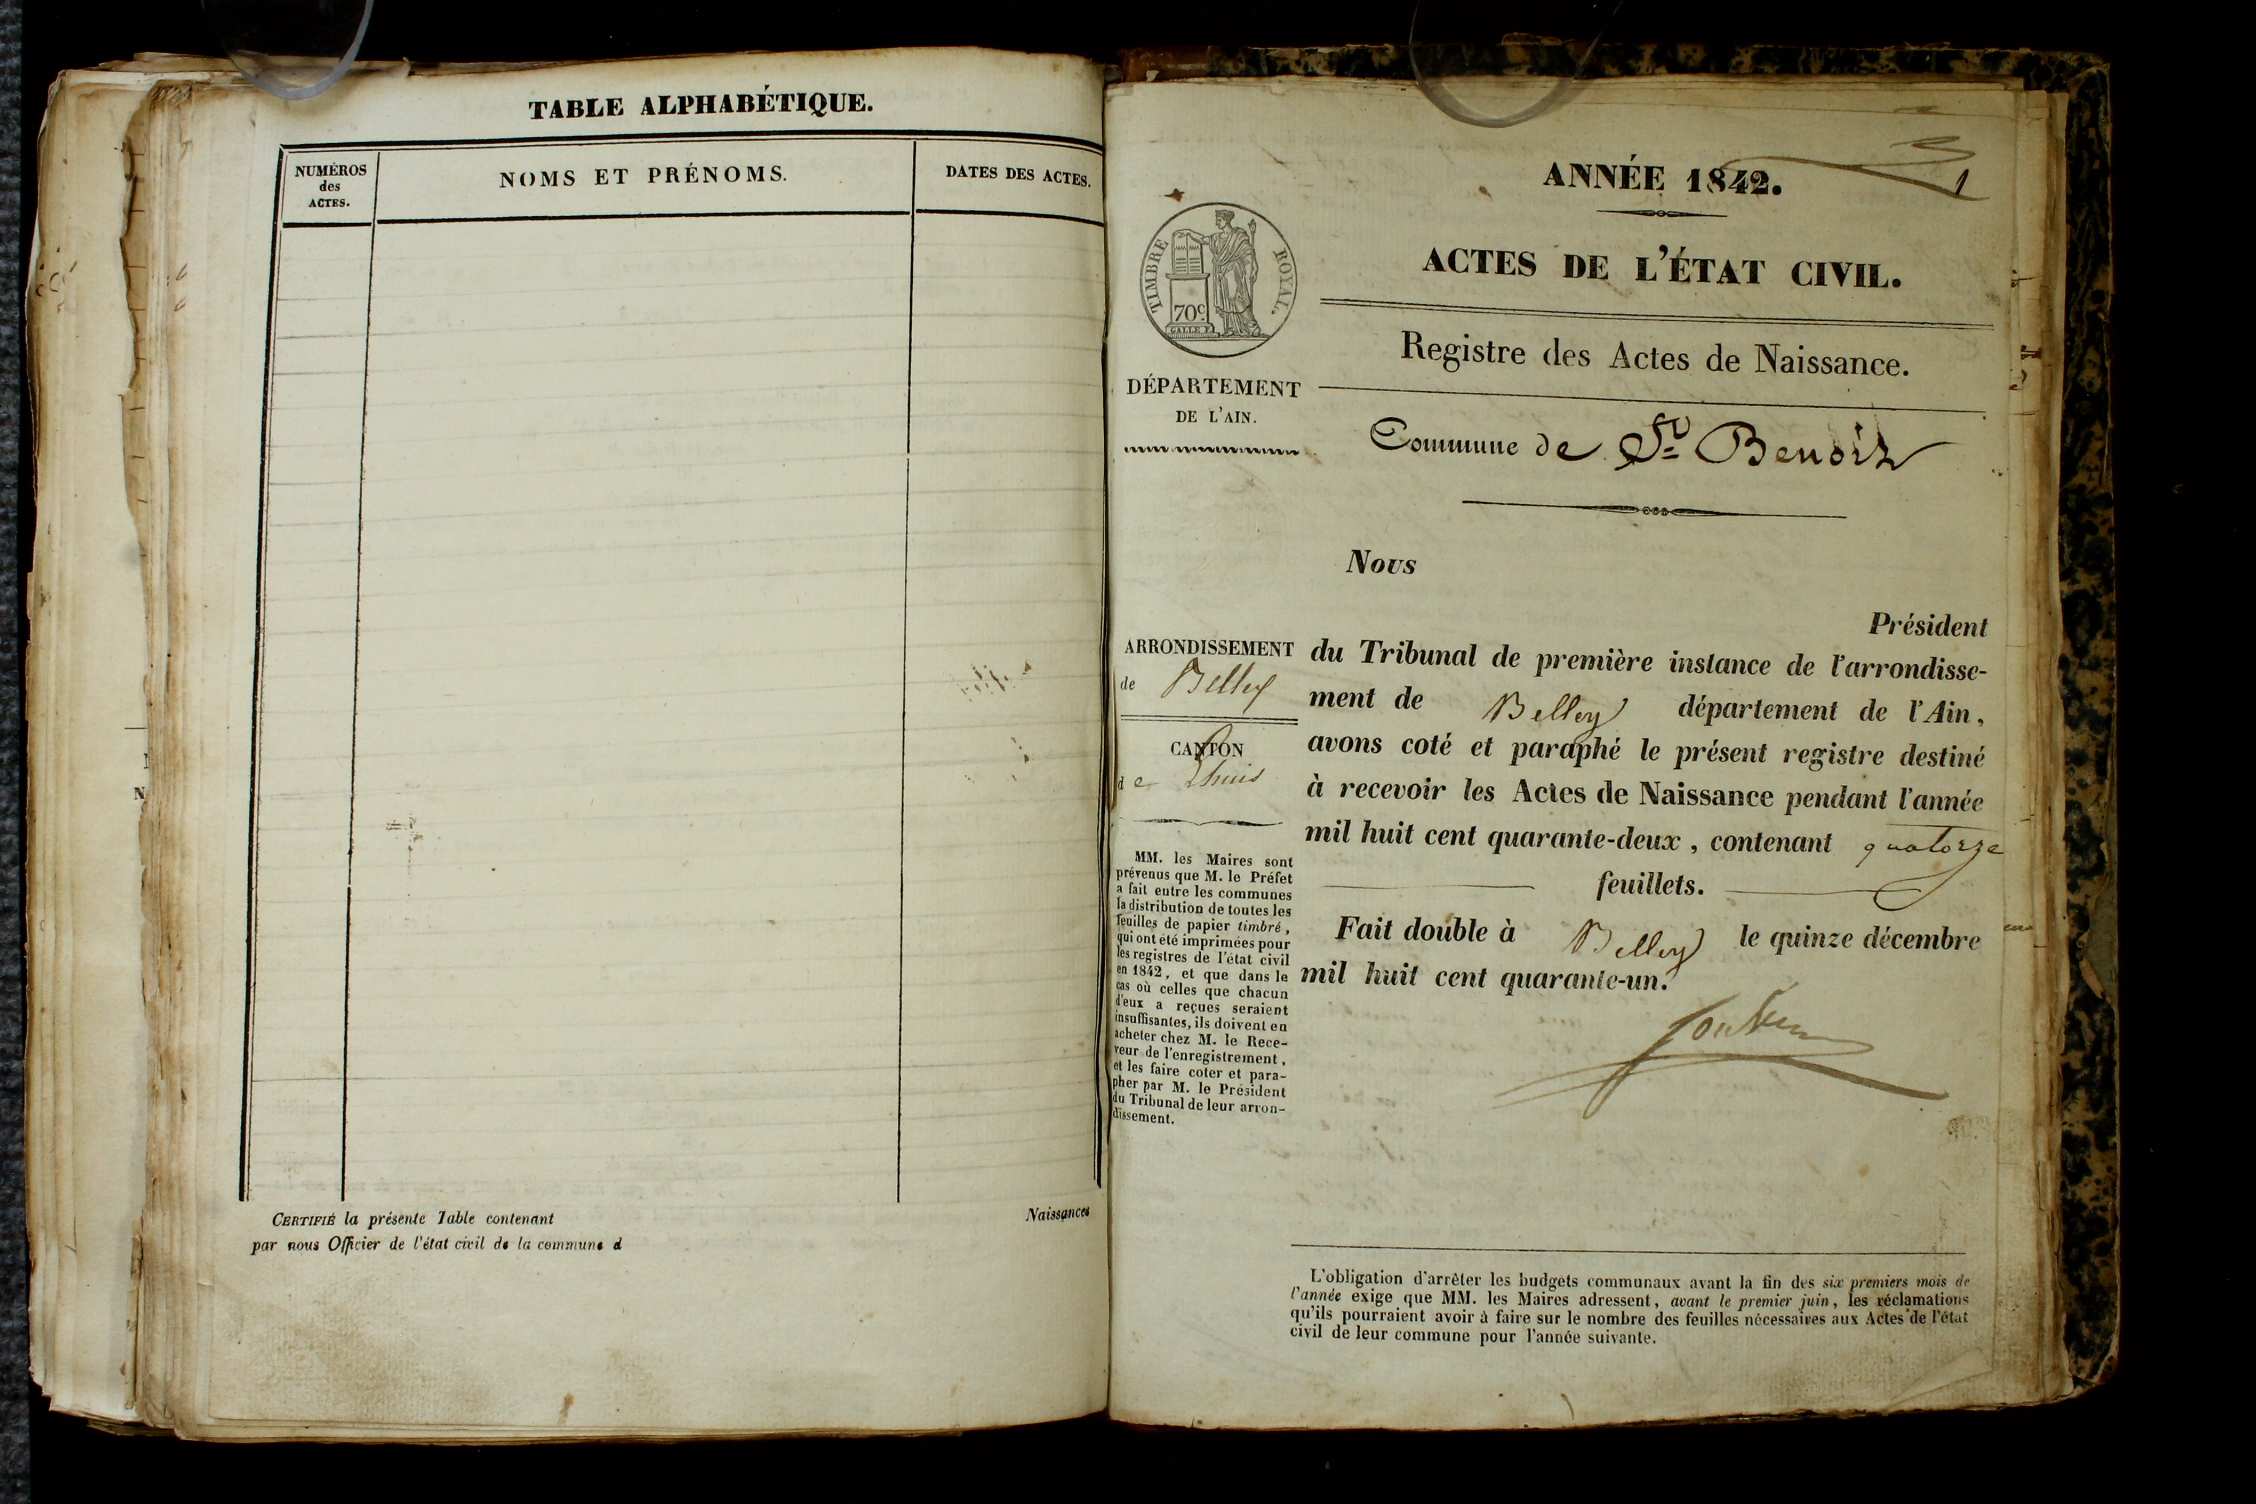 TABLE ALPHABÉTIQUE.
NUMÉROS
des
ACTES.
NOMS ET PRÉNOMS.
DATES DES ACTES.
CERTIFIÉ la présente Table contenant Naissances
par nous Officier de l'état civil de la commune d
1
ANNÉE 1842.
ACTES DE L'ÉTAT CIVIL.
Registre des Actes de Naissance.
TIMBRE ROYAL.
70c
DÉPARTEMENT
DE L'AIN.
Commune de St Benoit
Nous
Président
du Tribunal de première instance de l'arrondisse-
ment de Belley département de l'Ain,
avons coté et paraphé le présent registre destiné
à recevoir les Actes de Naissance pendant l'année
mil huit cent quarante-deux, contenant quatorze
feuillets.
Fait double à Belley le quinze décembre
mil huit cent quarante-un.
ARRONDISSEMENT
de Belley
CANTON
de Lhuis
MM. les Maires sont
prévenus que M. le Préfet
a fait entre les communes
la distribution de toutes les
feuilles de papier timbré,
qui ont été imprimées pour
les registres de l'état civil
en 1842, et que dans le
cas où celles que chacun
d'eux a reçues seraient
insuffisantes, ils doivent en
acheter chez M. le Rece-
veur de l'enregistrement,
et les faire coter et para-
pher par M. le Président
du Tribunal de leur arron-
dissement.
L'obligation d'arrêter les budgets communaux avant la fin des six premiers mois de
l'année exige que MM. les Maires adressent, avant le premier juin, les réclamations
qu'ils pourraient avoir à faire sur le nombre des feuilles nécessaires aux Actes de l'état
civil de leur commune pour l'année suivante.